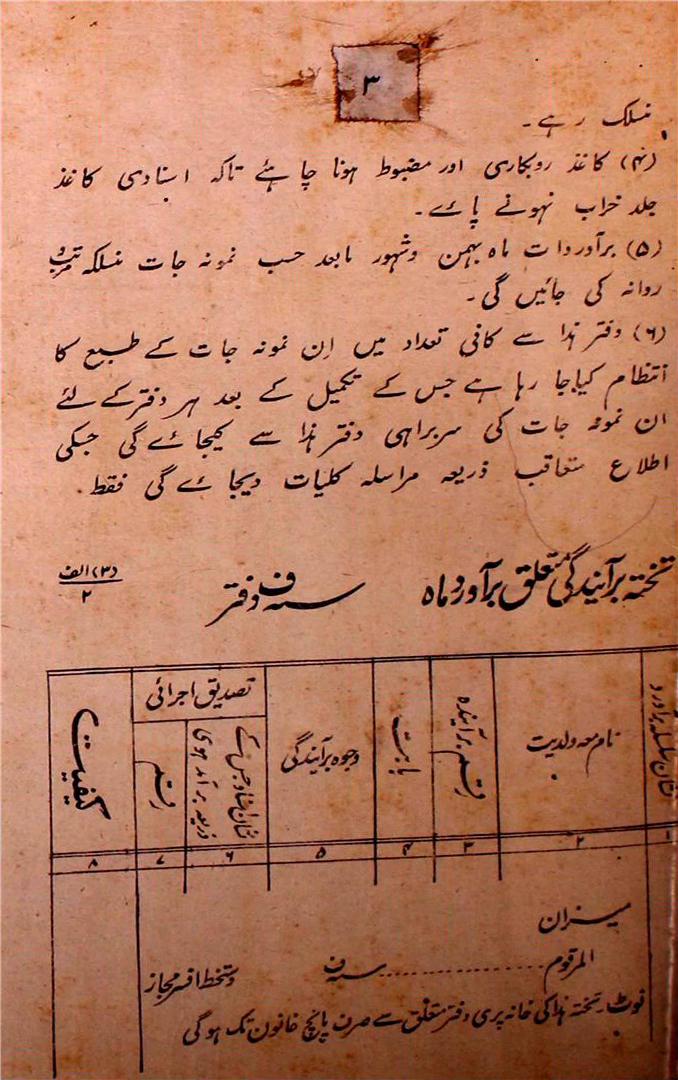 ۳
منسلک رہے۔
(۴) کاغذ روبکاری اور مضبوط ہونا چاہئے تاکہ اسنادی کاغذ
جلد خراب نہونے پائے۔
(۵) برآوردات ماہ بہمن و شہور مابعد حسب نمونہ جات منسلکہ مرتب و
روانہ کی جائیں گی۔
(۶) دفتر ہذا سے کافی تعداد میں ان نمونہ جات کے طبع کا
انتظام کیا جا رہا ہے جس کے تکمیل کے بعد ہر دفتر کے لئے
ان نمونہ جات کی سربراہی دفتر ہذا سے کیجائے گی جسکی
اطلاع متعاقب ذریعہ مراسلہ کلیات دیجائے گی فقط
تختہ برآیندگی متعلق برآورد ماہ سنہ ف دفتر (۳) الف ۲
نشان سلسلہ برآورد
نام معہ ولدیت
رقم برآیندہ
بابت
وجوہ برآیندگی
تصدیق اجرائی
نشان اسناد جس کے ذریعہ برآمد ہوی
رقم
کیفیت
۱ ۲ ۳ ۴ ۵ ۶ ۷ ۸
میزان
المرقوم ............ سنہ ف دستخط افسر مجاز
نوٹ۔ تختہ ہذا کی خانہ پری دفتر متعلق سے صرف پانچ خانون تک ہوگی